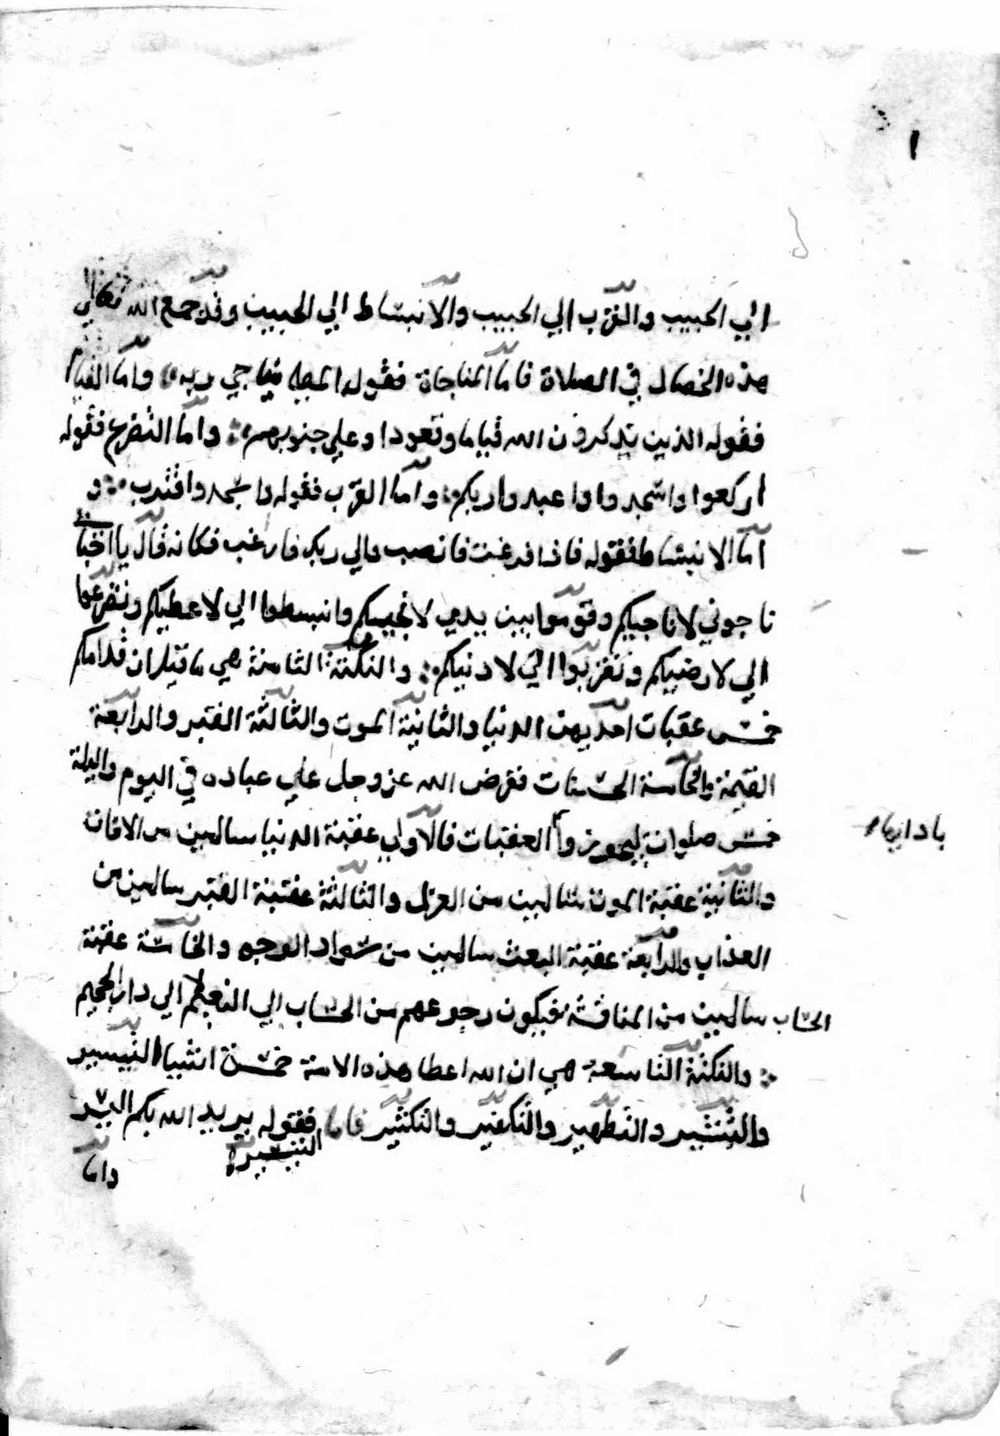 ١
الي الحبيب والقرب الي الحبيب والانبساط الي الحبيب وقد جمع الله تعالي
هذه الخصال في الصلاة فاما المناجاة فقوله المصلي يناجي ربه واما القيام
فقوله الذين يذكرون الله قياما وقعودا وعلي جنوبهم واما التضرع فقوله
اركعوا واسجدوا واعبدوا ربكم واما القرب فقوله واسجد واقترب و
اما الانبساط فقوله فاذا فرغت فانصب والي ربك فارغب فكانه قال يا احبا
ناجوني لاناجيكم وقوموا بين يدي لاجيبكم وانبسطوا الي لاعطيكم وتضرعوا
الي لارضيكم وتقربوا الي لادنيكم والنكتة الثامنة هي ما قيل ان قدامكم
خمس عقبات احديهن الدنيا والثانية الموت والثالثة القبر والرابعة
القيمة والخامسة الحساب ففرض الله عز وجل علي عباده في اليوم والليلة
خمس صلوات ليجوزوا العقبات فالاولي عقبة الدنيا سالمين من الافات
والثانية عقبة الموت سالمين من العزل والثالثة عقبة القبر سالمين من
العذاب والرابعة عقبة البعث سالمين من سواد الوجوه والخامسة عقبة
الحساب سالمين من المناقشة فيكون رجوعهم من الحساب الي النعيم لا الي دار الجحيم
والنكتة التاسعة هي ان الله اعطا هذه الامة خمسة اشيا التيسير
والتبشير والتطهير والتكفير والتكثير فاما التيسير فقوله يريد الله بكم اليسر
واما